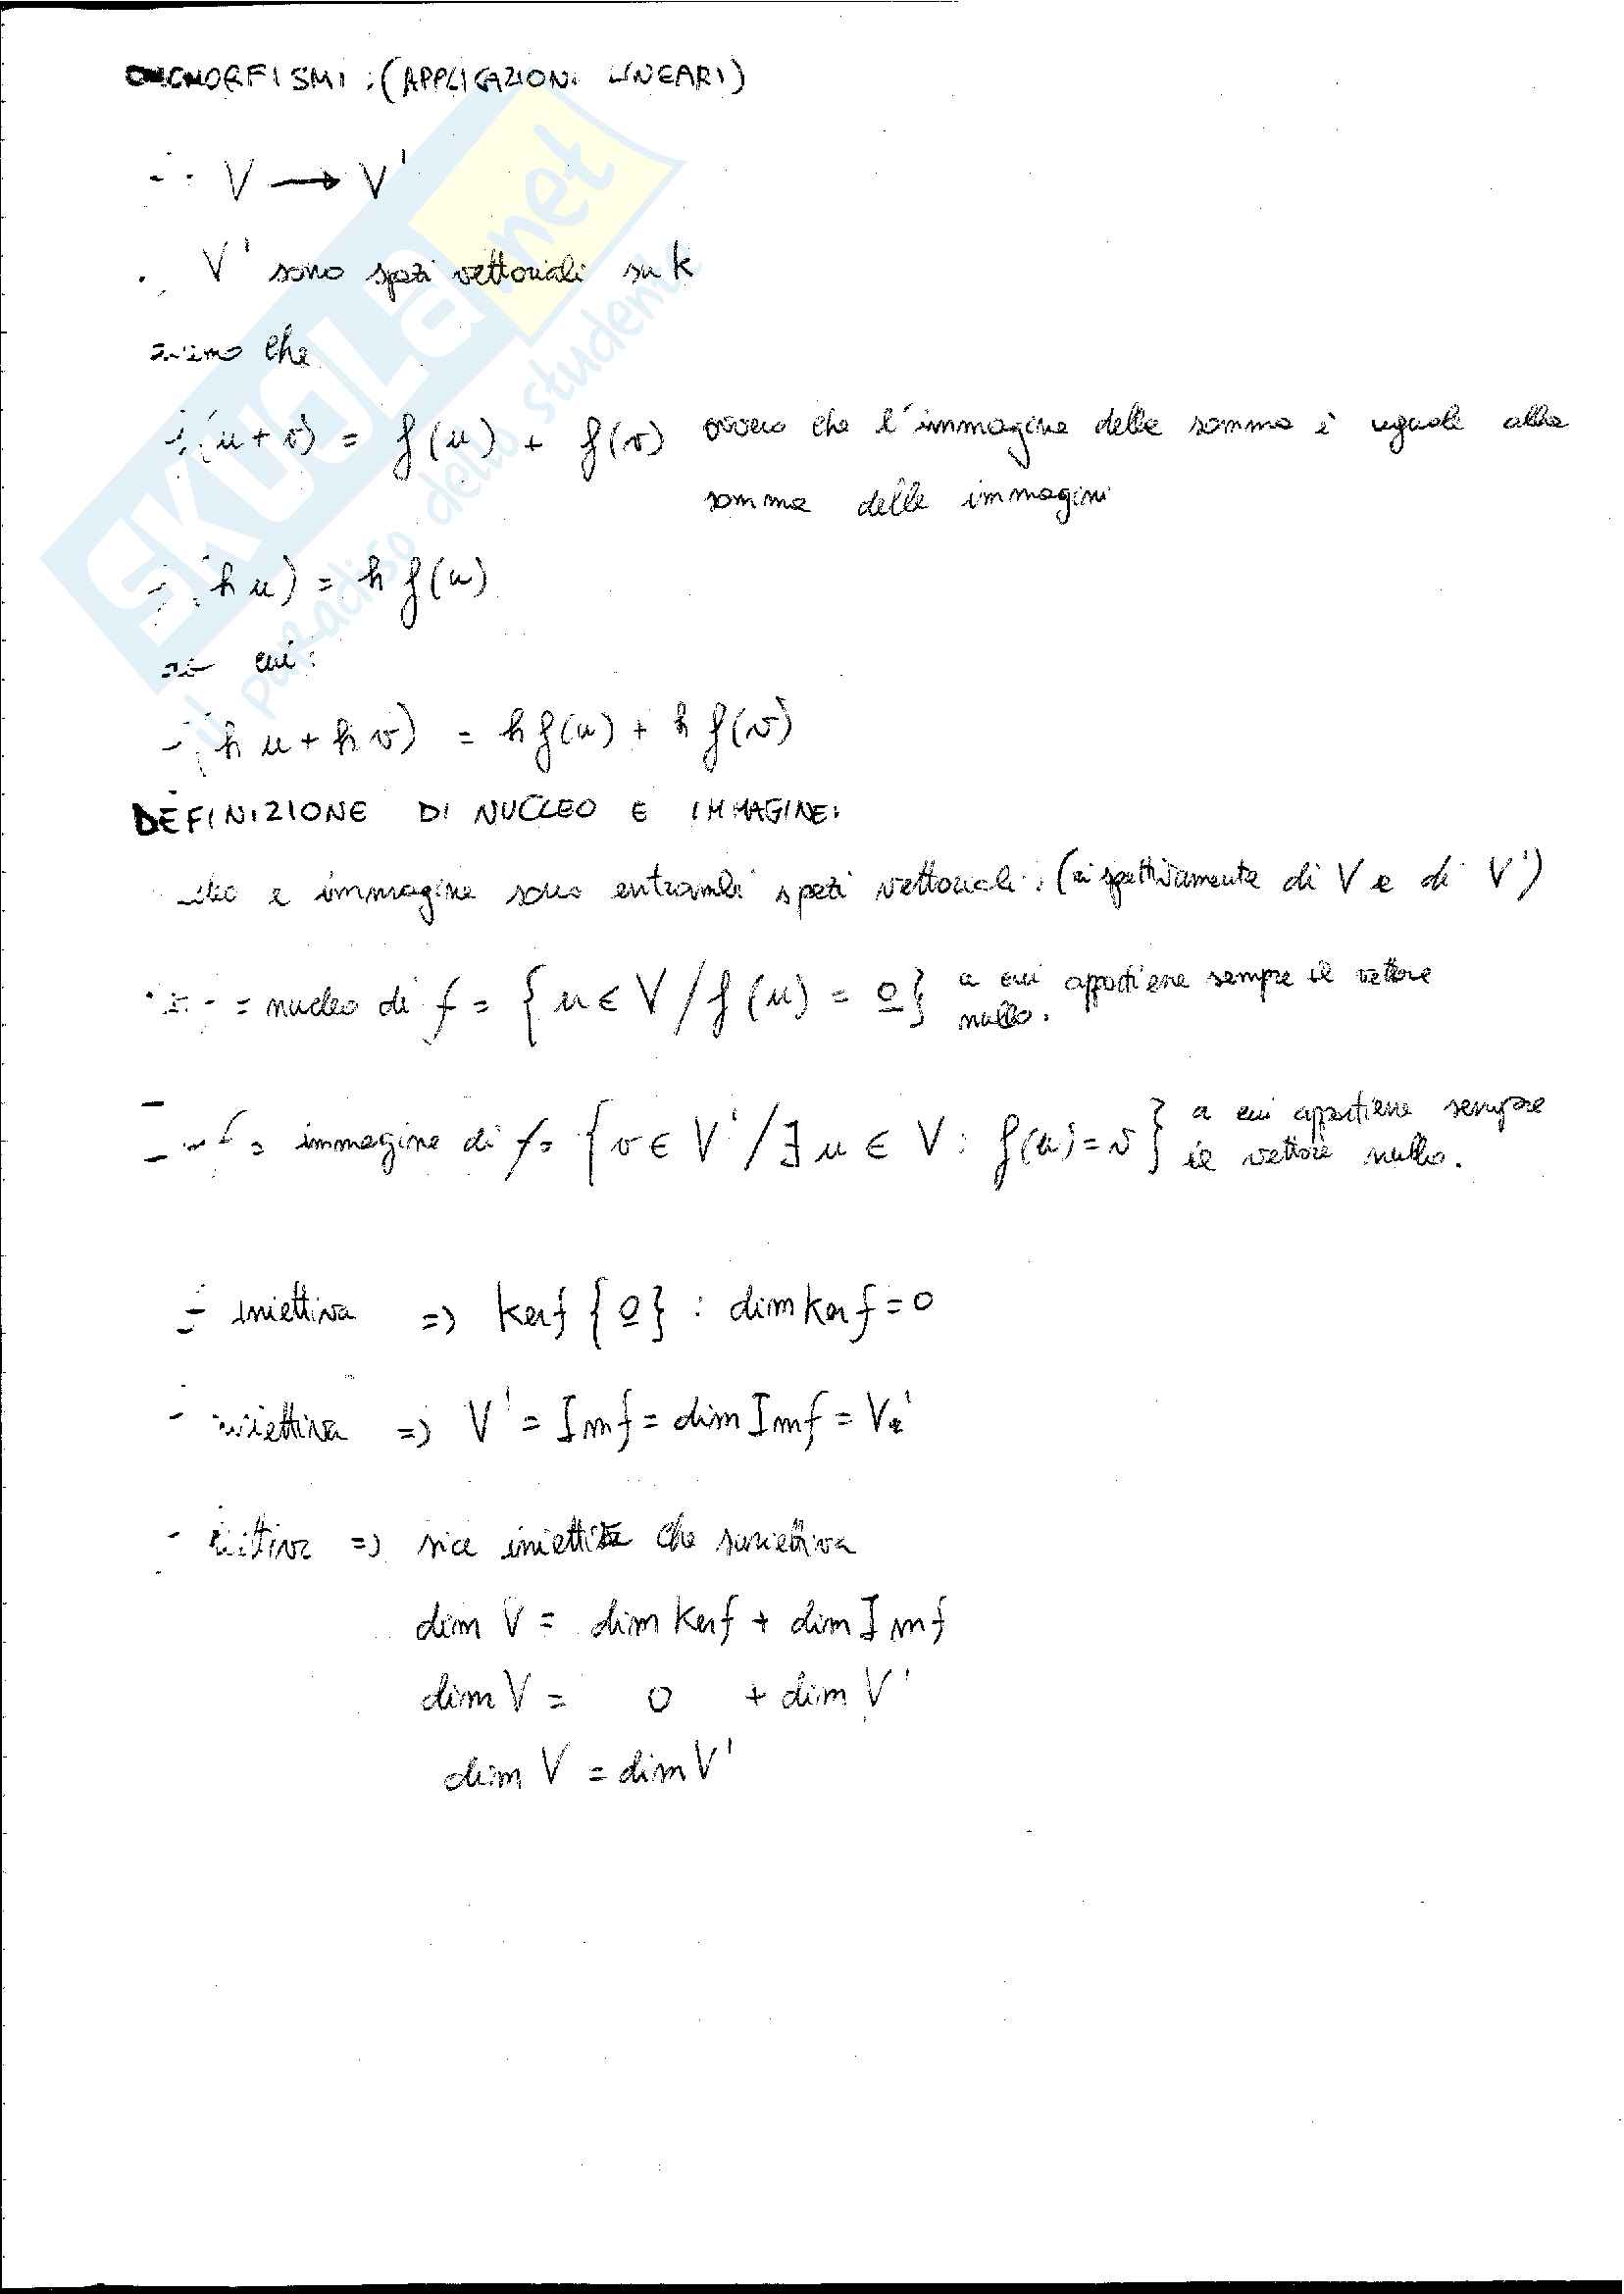 OMOMORFISMI : (APPLICAZIONI LINEARI)
: V → V'
V' sono spazi vettoriali su K
che
(u+v) = f(u) + f(v) ovvero che l'immagine della somma è uguale alla
somma delle immagini
(h u) = h f(u)
cui:
(h u + h v) = h f(u) + h f(v)
DEFINIZIONE DI NUCLEO E IMMAGINE:
e immagine sono entrambi spazi vettoriali: (rispettivamente di V e di V')
= nucleo di f = {u ∈ V / f(u) = 0} a cui appartiene sempre il vettore
nullo.
f = immagine di f = {v ∈ V' / ∃ u ∈ V : f(u) = v} a cui appartiene sempre
il vettore nullo.
iniettiva => Kerf {0} : dim Kerf = 0
suriettiva => V' = Imf = dim Imf = V'
=> sia iniettiva che suriettiva
dim V = dim Kerf + dim Imf
dim V = 0 + dim V'
dim V = dim V'
SKUOLA.net
il paradiso dello studente